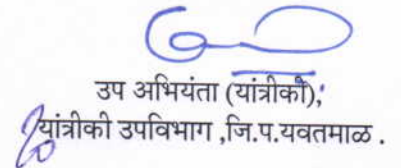 उप अभियंता (यांत्रीकी),
यांत्रीकी उपविभाग ,जि.प.यवतमाळ .